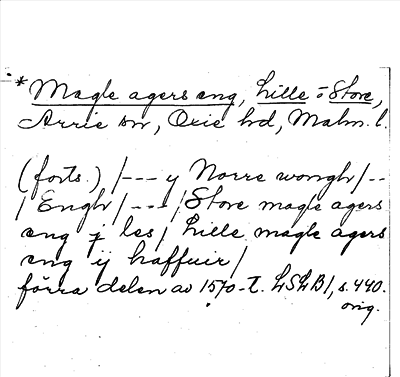 * Magle agers ang, Lille o Store,
Arrie sn, Oxie hd, Malm. l.
(forts.) /--- y Norre wongh/--
/ Engh / --- / Store magle agers
ang j les / Lille magle agers
ang ij haffuir /
förra delen av 1570-t. LSLB1, s. 440.
orig.